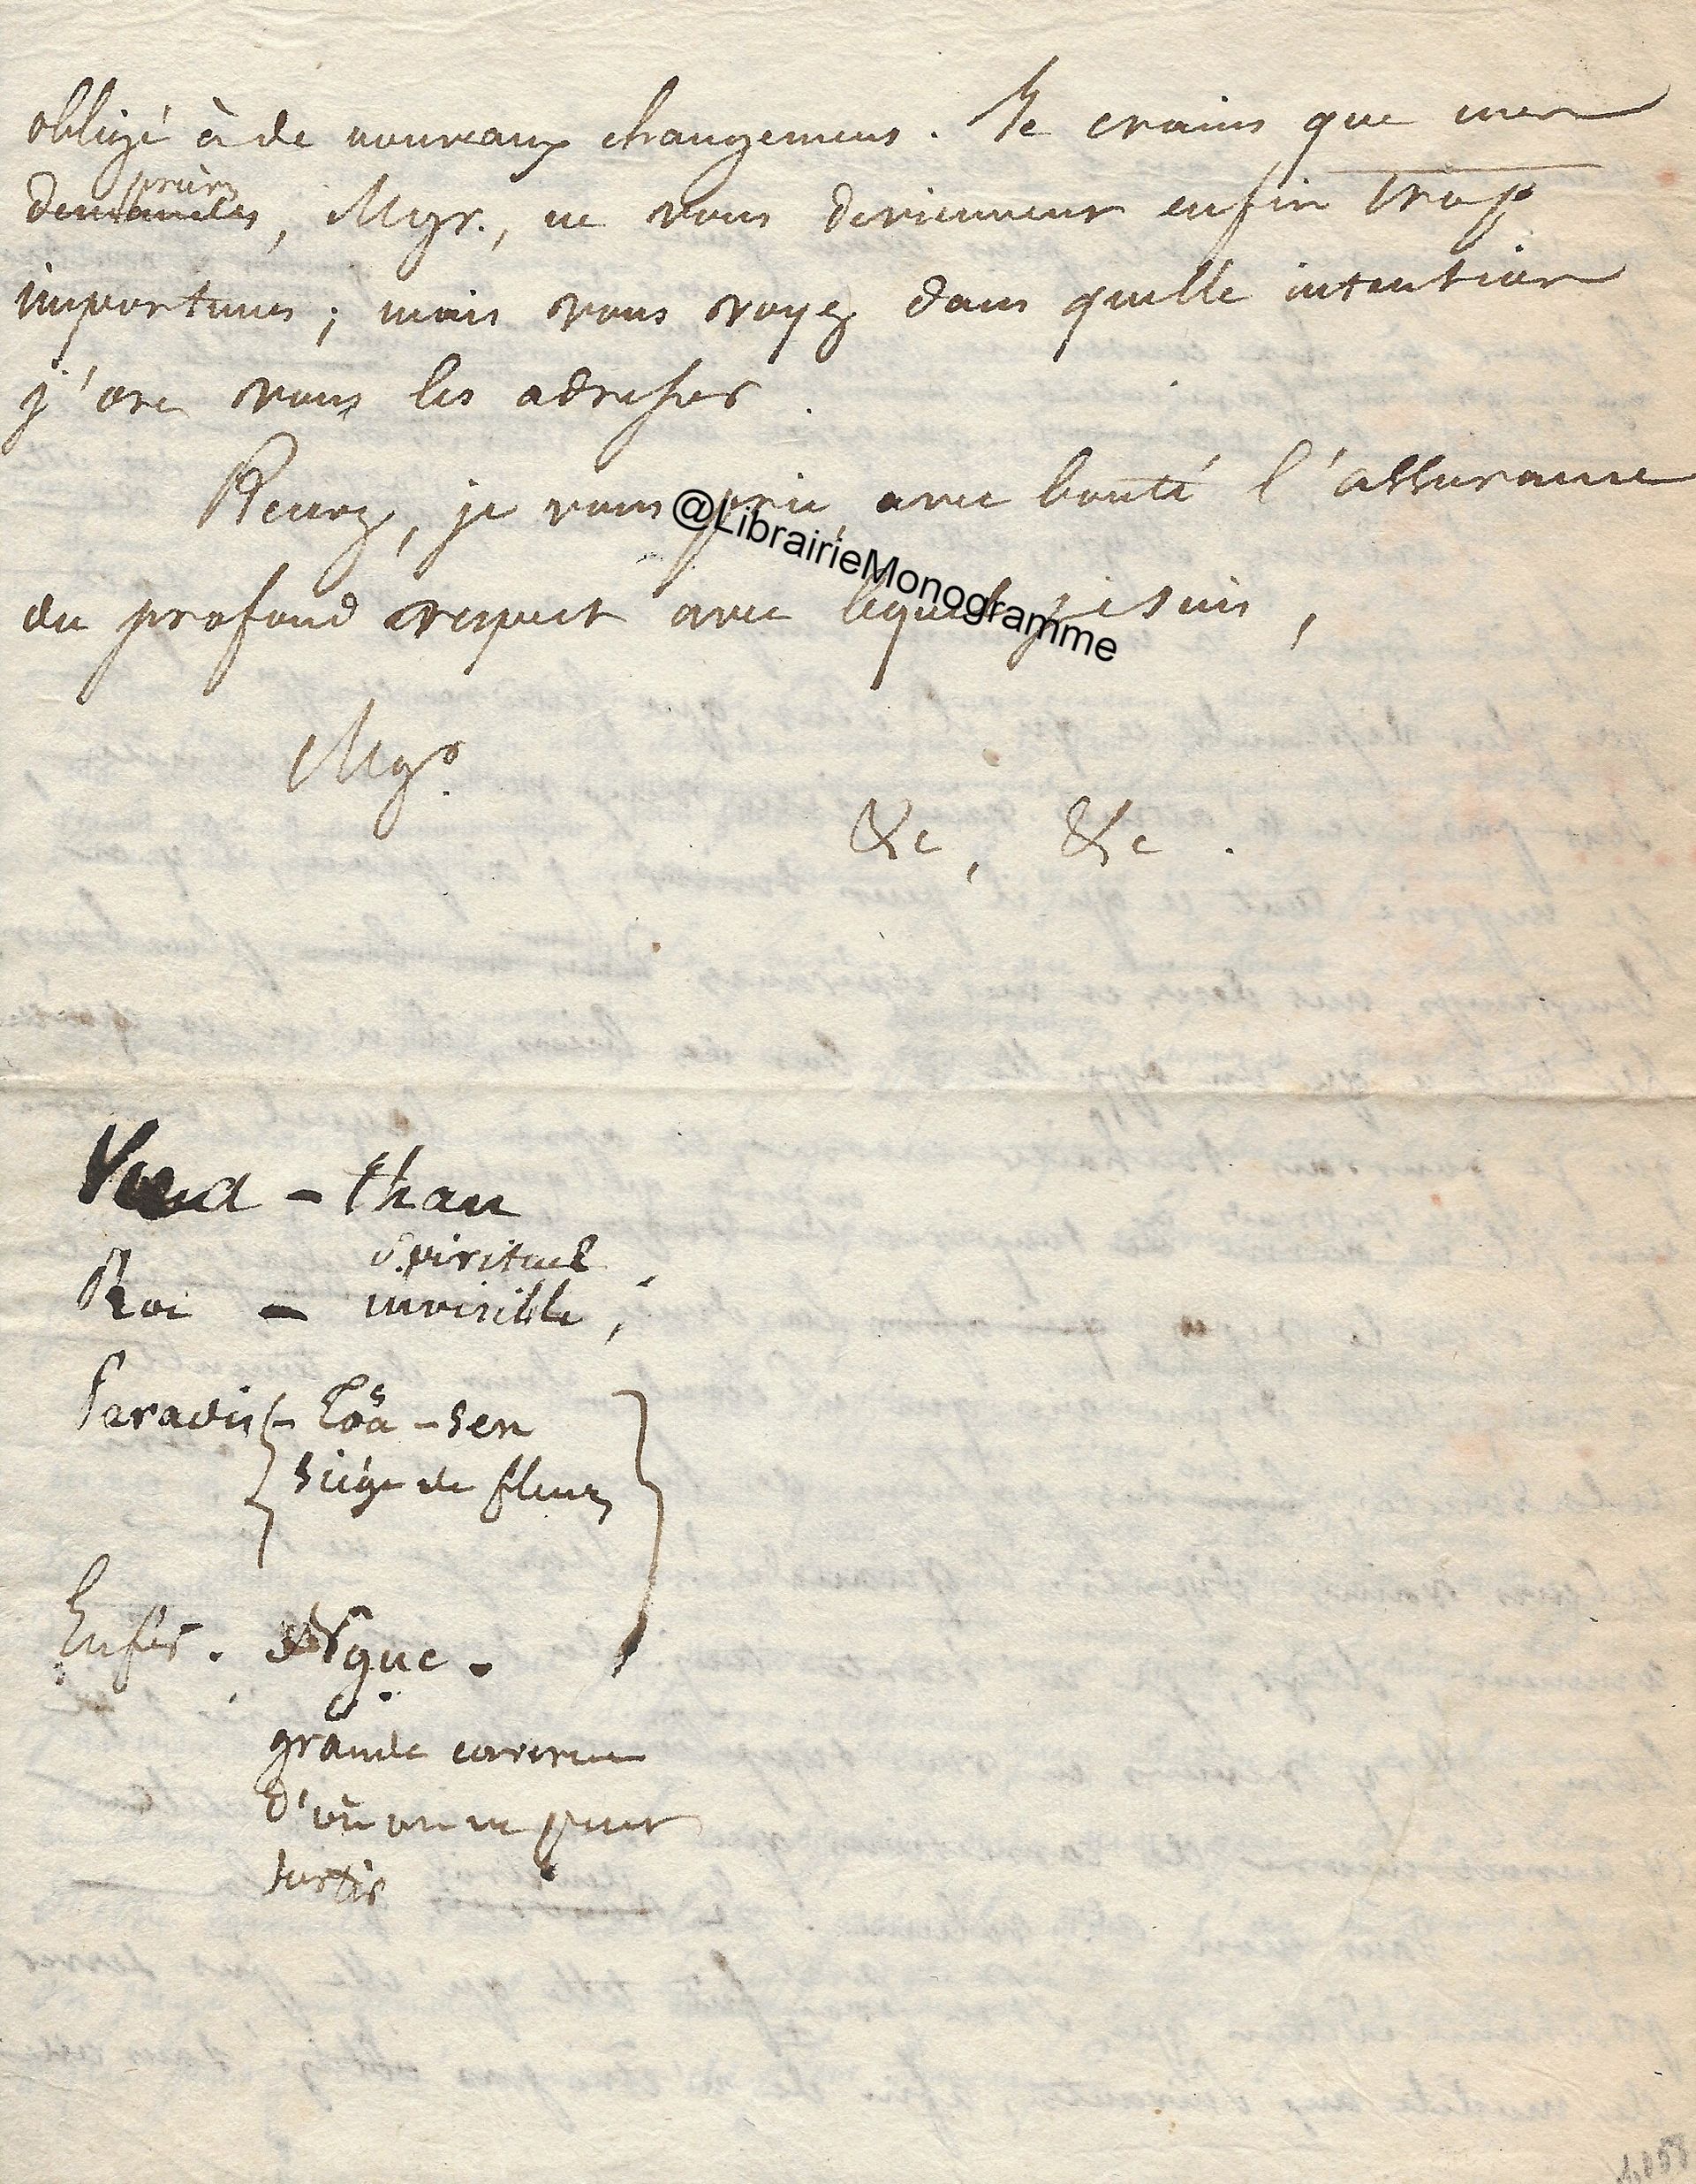 obligé à de nouveaux changemens. Je crains que mes
prières
demandes, Mgr., ne vous deviennent enfin trop
importunes; mais vous voyez dans quelle intention
j'ose vous les adresser.
Recevez, je vous prie, avec bonté l'assurance
@LibrairieMonogramme
du profond respect avec lequel je suis,
Mgr.
&c, &c.
- than
Spirituel
Roi - invisible,
Paradis - Toà - sen
siége de fleurs
Enfer. Nguc.
grande caverne
d'où on ne peut
sortir